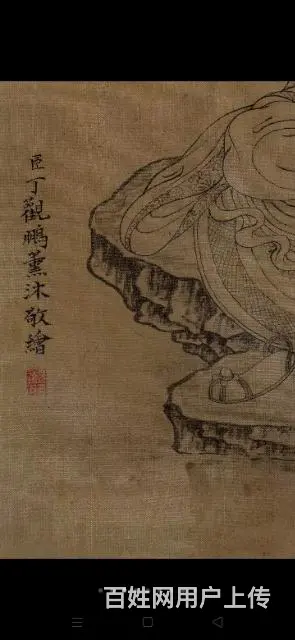 臣丁觀鵬薰沐敬繪
百姓网用户上传